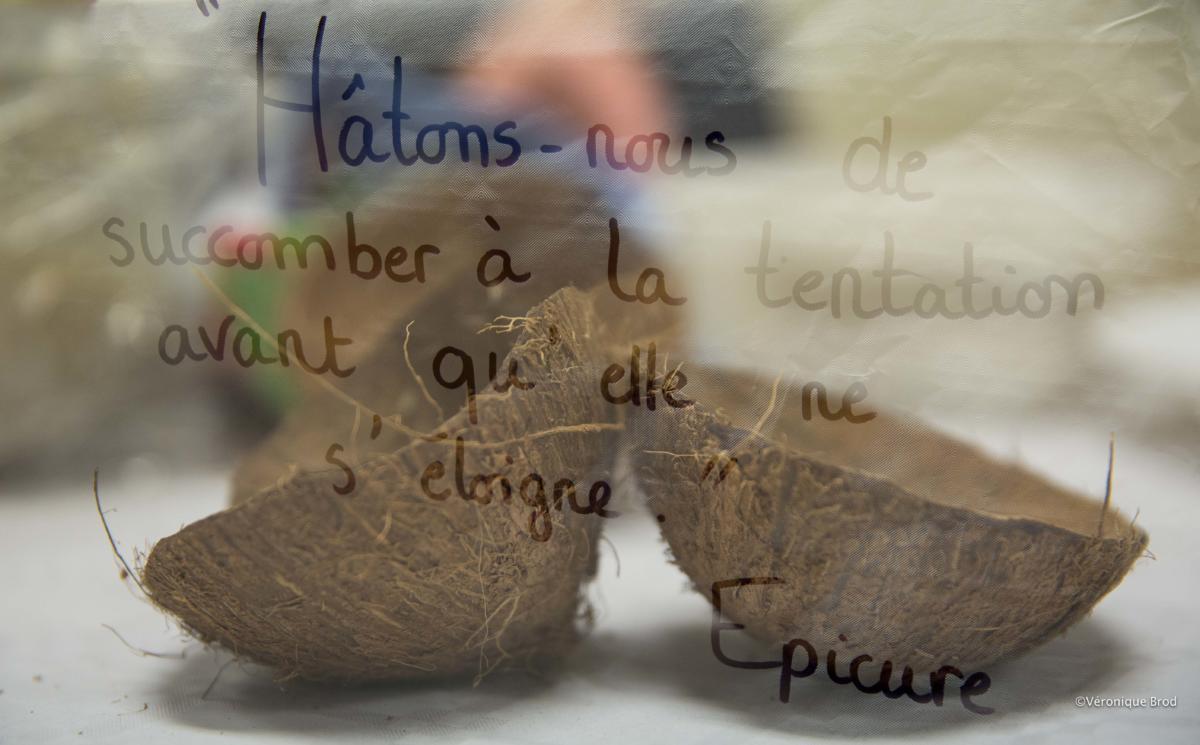 "Hâtons-nous de
succomber à la tentation
avant qu'elle ne
s'eloigne."
Epicure
©Véronique Brod